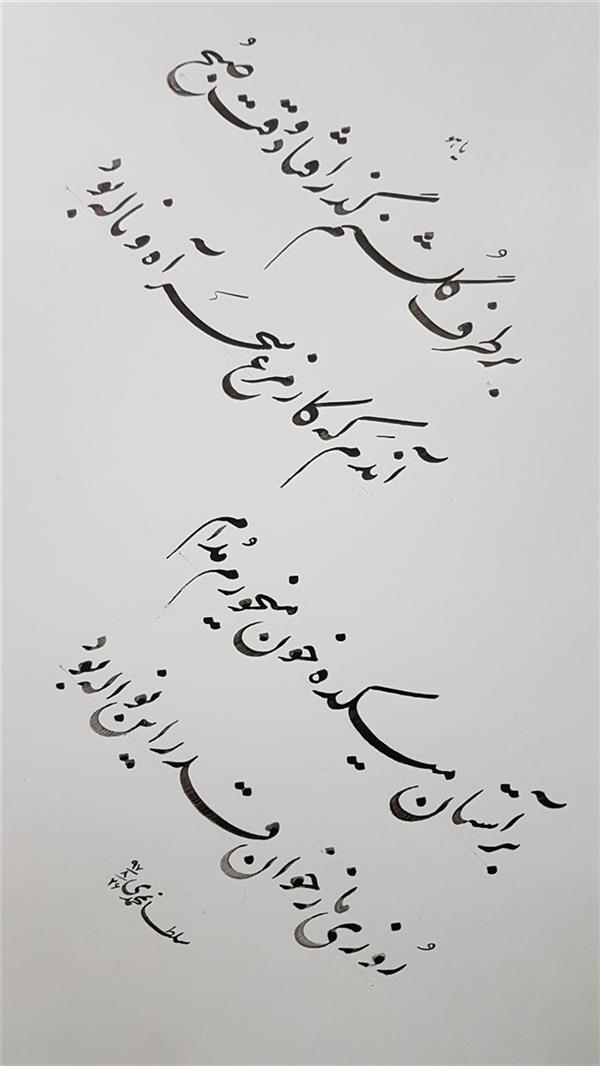 یا هو
بر طرف گلشنم گذر افتاد وقت صُبح
آندم که کار مرغ سحَر آه و ناله بود
بر آستان میکده خون میخورم مُدام
رُوزی ما ز خوان قدر این نواله بود
سلطانمحمدی
۹۷/۸/۲۶